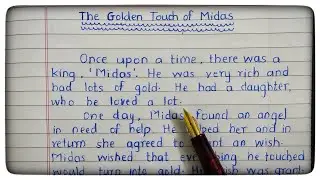 The Golden Touch of Midas
Once upon a time, there was a
king, 'Midas'. He was very rich and
had lots of gold. He had a daughter,
who he loved a lot.
One day, Midas found an angel
in need of help. He helped her and in
return she agreed to grant an wish.
Midas wished that everything he touched
would turn into gold. His wish was